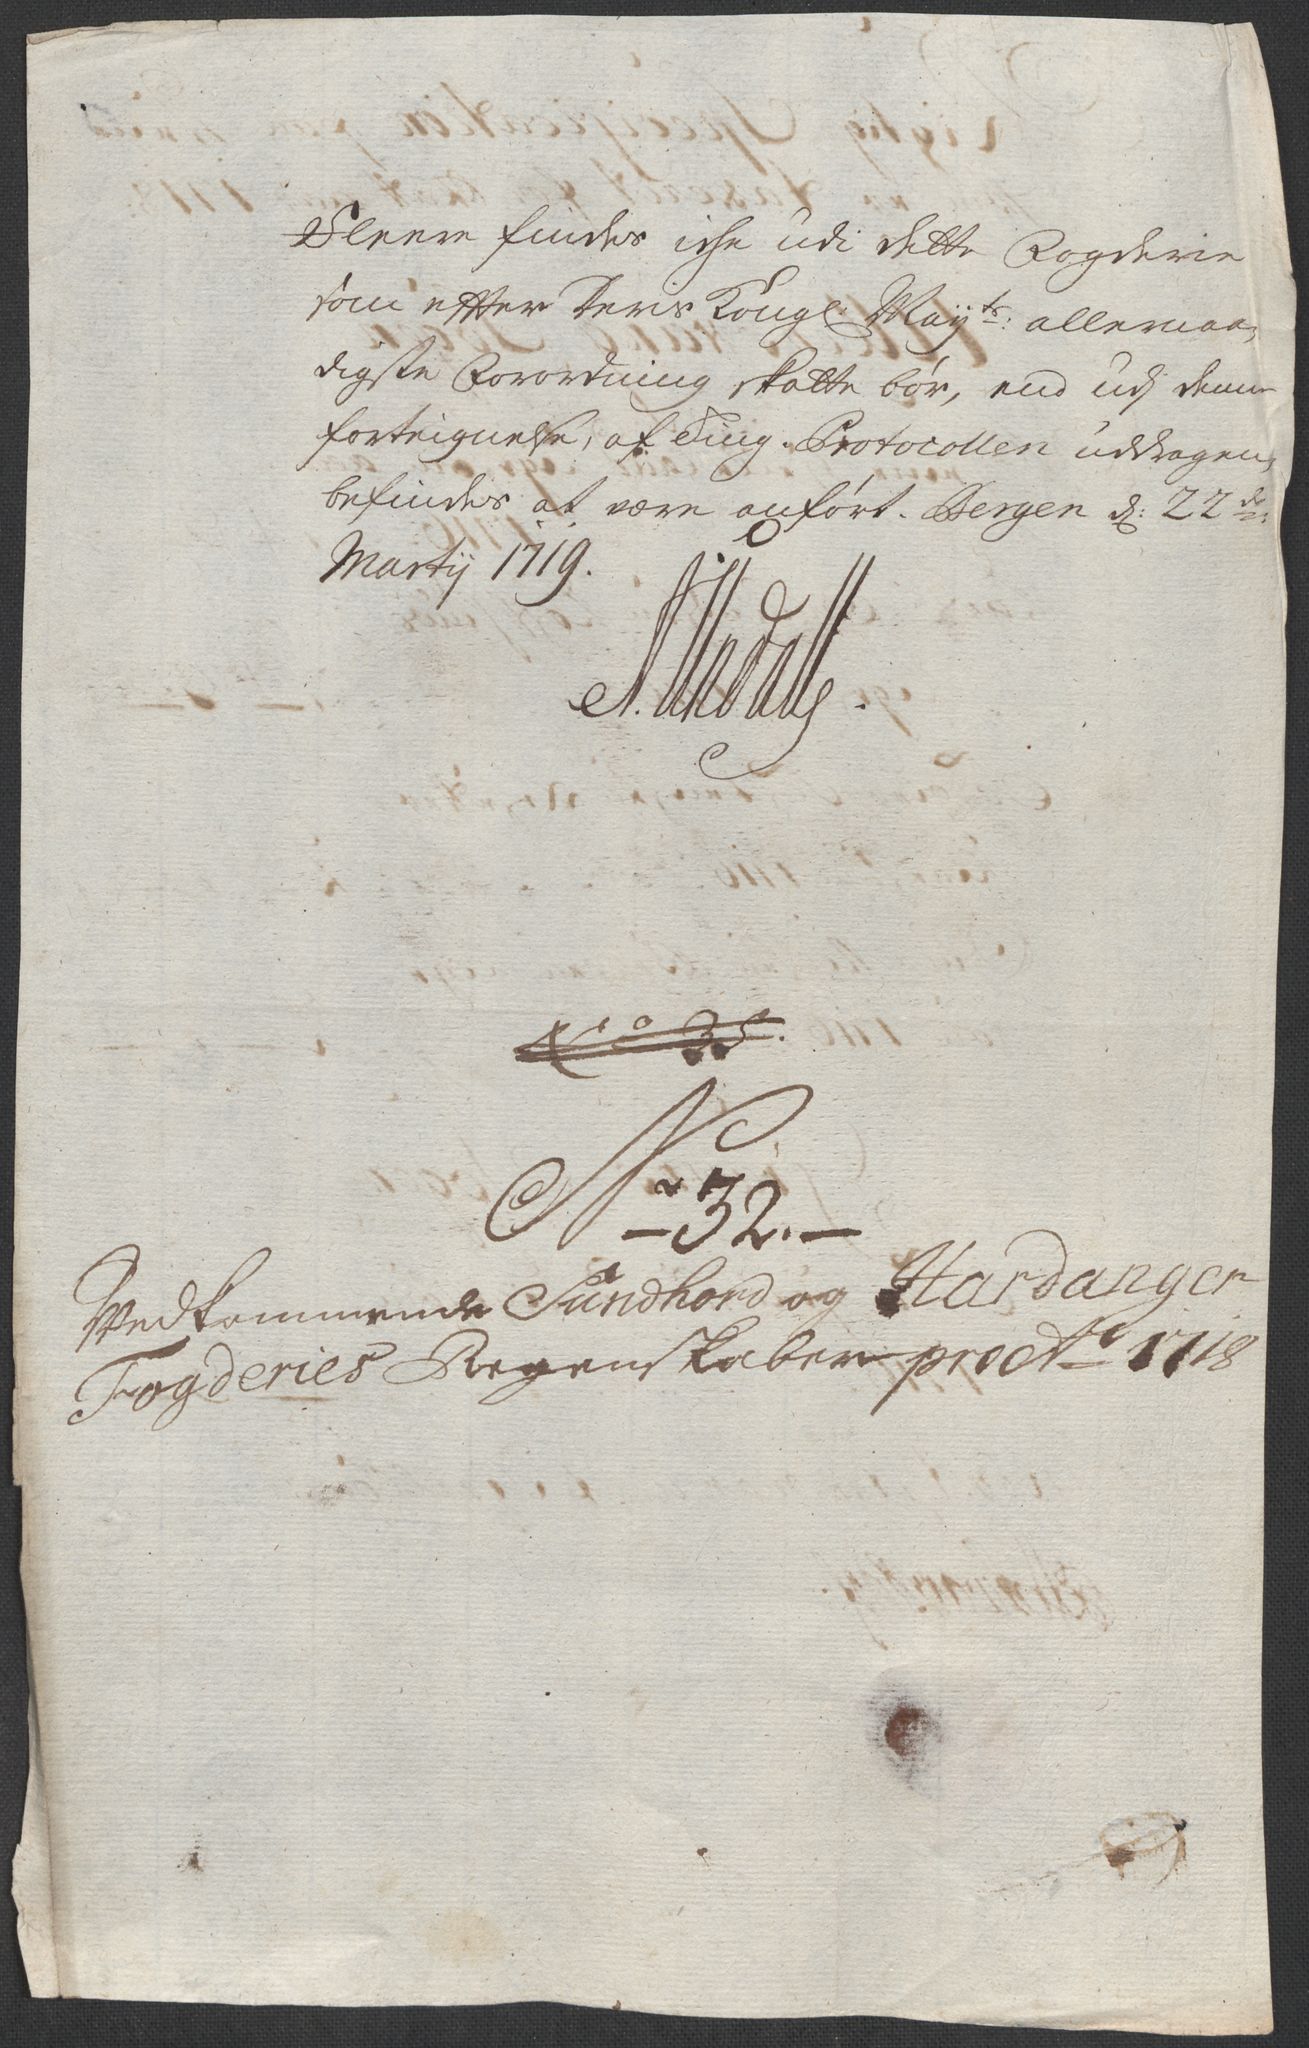 Fleere findes iche udi dette Fogderie
som efter Deris Kongl: Mayts: allernaa,
digste Forordning skatte bør, end udj denne
forteignelse, af Ting-Protocollen uddragen,
befindes at være anført. Bergen d: 22de
Martij 1719.
No 35.
Nr 32.
Vedkommende Sundhord og Hardanger
Fogderies Regenskaber pro Ao 1718